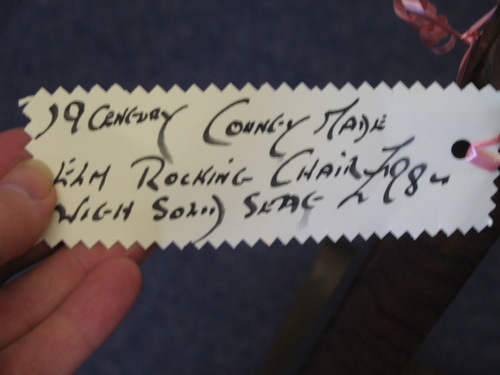 19 CENTURY COUNTY MADE
ELM ROCKING CHAIR £98
WITH SOLID SEAT